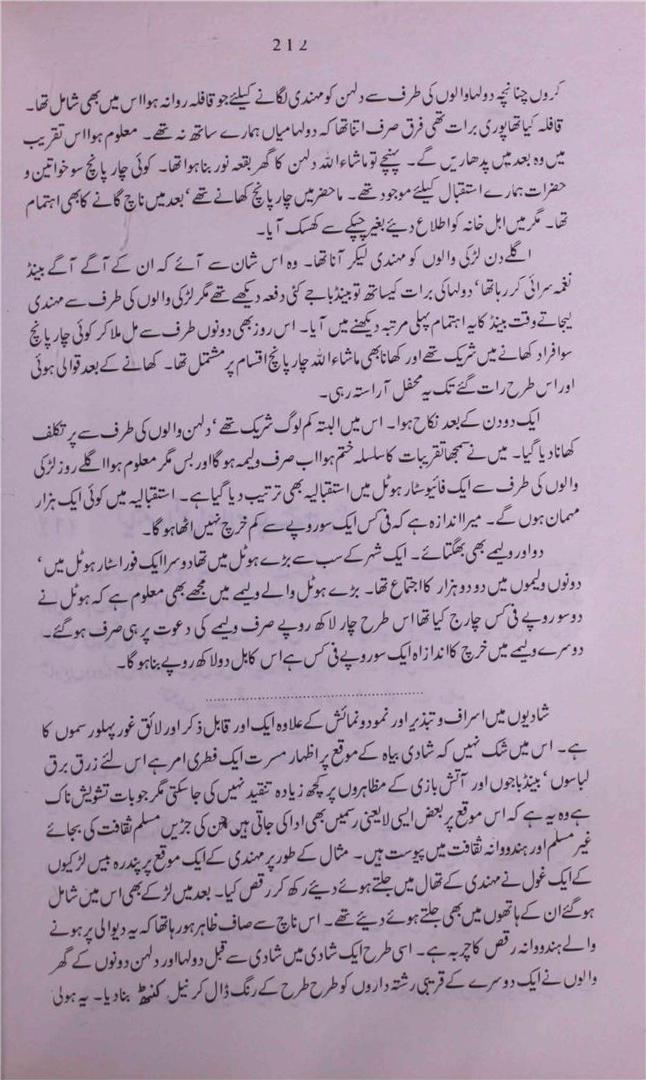 212
کروں چنانچہ دولہا والوں کی طرف سے دلہن کو مہندی لگانے کیلئے جو قافلہ روانہ ہوا اس میں بھی شامل تھا۔
قافلہ کیا تھا پوری برات تھی فرق صرف اتنا تھا کہ دولہا میاں ہمارے ساتھ نہ تھے۔ معلوم ہوا اس تقریب
میں وہ بعد میں پدھاریں گے۔ پہنچے تو ماشاء اللہ دلہن کا گھر بقعہ نور بنا ہوا تھا۔ کوئی چار پانچ سو خواتین و
حضرات ہمارے استقبال کیلئے موجود تھے۔ ماحضر میں چار پانچ کھانے تھے‘ بعد میں ناچ گانے کا بھی اہتمام
تھا۔ مگر میں اہل خانہ کو اطلاع دیئے بغیر چپکے سے کھسک آیا۔
اگلے دن لڑکی والوں کو مہندی لیکر آنا تھا۔ وہ اس شان سے آئے کہ ان کے آگے آگے بینڈ
نغمہ سرائی کر رہا تھا‘ دولہا کی برات کیساتھ تو بینڈ باجے کئی دفعہ دیکھے تھے مگر لڑکی والوں کی طرف سے مہندی
لیجاتے وقت بینڈ کا یہ اہتمام پہلی مرتبہ دیکھنے میں آیا۔ اس روز بھی دونوں طرف سے مل ملا کر کوئی چار پانچ
سو افراد کھانے میں شریک تھے اور کھانا بھی ماشاء اللہ چار پانچ اقسام پر مشتمل تھا۔ کھانے کے بعد قوالی ہوئی
اور اس طرح رات گئے تک یہ محفل آراستہ رہی۔
ایک دو دن کے بعد نکاح ہوا۔ اس میں البتہ کم لوگ شریک تھے‘ دلہن والوں کی طرف سے پر تکلف
کھانا دیا گیا۔ میں نے سمجھا تقریبات کا سلسلہ ختم ہوا اب صرف ولیمہ ہو گا اور بس مگر معلوم ہوا اگلے روز لڑکی
والوں کی طرف سے ایک فائیو سٹار ہوٹل میں استقبالیہ بھی ترتیب دیا گیا ہے۔ استقبالیہ میں کوئی ایک ہزار
مہمان ہوں گے۔ میرا اندازہ ہے کہ فی کس ایک سو روپے سے کم خرچ نہیں اٹھا ہو گا۔
دو اور ولیمے بھی بھگتائے۔ ایک شہر کے سب سے بڑے ہوٹل میں تھا دوسرا ایک فور اسٹار ہوٹل میں‘
دونوں ولیموں میں دو دو ہزار کا اجتماع تھا۔ بڑے ہوٹل والے ولیمے میں مجھے بھی معلوم ہے کہ ہوٹل نے
دو سو روپے فی کس چارج کیا تھا اس طرح چار لاکھ روپے صرف ولیمے کی دعوت پر ہی صرف ہو گئے۔
دوسرے ولیمے میں خرچ کا اندازہ ایک سو روپے فی کس ہے اس کا بل دو لاکھ روپے بنا ہو گا۔
شادیوں میں اسراف و تبذیر اور نمود و نمائش کے علاوہ ایک اور قابل ذکر اور لائق غور پہلو رسموں کا
ہے۔ اس میں شک نہیں کہ شادی بیاہ کے موقع پر اظہار مسرت ایک فطری امر ہے اس لئے زرق برق
لباسوں‘ بینڈ باجوں اور آتش بازی کے مظاہروں پر کچھ زیادہ تنقید نہیں کی جا سکتی مگر جو بات تشویش ناک
ہے وہ یہ ہے کہ اس موقع پر بعض ایسی لایعنی رسمیں بھی ادا کی جاتی ہیں جن کی جڑیں مسلم ثقافت کی بجائے
غیر مسلم اور ہندووانہ ثقافت میں پیوست ہیں۔ مثال کے طور پر مہندی کے ایک موقع پر پندرہ بیس لڑکیوں
کے ایک غول نے مہندی کے تھال میں جلتے ہوئے دیئے رکھ کر رقص کیا۔ بعد میں لڑکے بھی اس میں شامل
ہو گئے ان کے ہاتھوں میں بھی جلتے ہوئے دیئے تھے۔ اس ناچ سے صاف ظاہر ہو رہا تھا کہ یہ دیوالی پر ہونے
والے ہندووانہ رقص کا چربہ ہے۔ اسی طرح ایک شادی میں شادی سے قبل دولہا اور دلہن دونوں کے گھر
والوں نے ایک دوسرے کے قریبی رشتہ داروں کو طرح طرح کے رنگ ڈال کر نیل کنٹھ بنا دیا۔ یہ ہولی